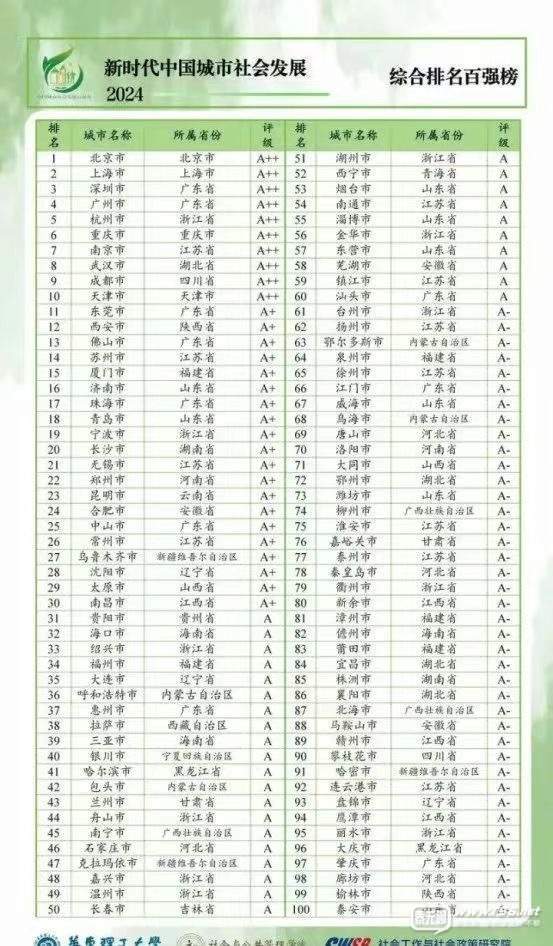 新时代中国城市社会发展
2024
综合排名百强榜
排名 城市名称 所属省份 评级
1 北京市 北京市 A++
2 上海市 上海市 A++
3 深圳市 广东省 A++
4 广州市 广东省 A++
5 杭州市 浙江省 A++
6 重庆市 重庆市 A++
7 南京市 江苏省 A++
8 武汉市 湖北省 A++
9 成都市 四川省 A++
10 天津市 天津市 A++
11 东莞市 广东省 A+
12 西安市 陕西省 A+
13 佛山市 广东省 A+
14 苏州市 江苏省 A+
15 厦门市 福建省 A+
16 济南市 山东省 A+
17 珠海市 广东省 A+
18 青岛市 山东省 A+
19 宁波市 浙江省 A+
20 长沙市 湖南省 A+
21 无锡市 江苏省 A+
22 郑州市 河南省 A+
23 昆明市 云南省 A+
24 合肥市 安徽省 A+
25 中山市 广东省 A+
26 常州市 江苏省 A+
27 乌鲁木齐市 新疆维吾尔自治区 A+
28 沈阳市 辽宁省 A+
29 太原市 山西省 A+
30 南昌市 江西省 A+
31 贵阳市 贵州省 A
32 海口市 海南省 A
33 绍兴市 浙江省 A
34 福州市 福建省 A
35 大连市 辽宁省 A
36 呼和浩特市 内蒙古自治区 A
37 惠州市 广东省 A
38 拉萨市 西藏自治区 A
39 三亚市 海南省 A
40 银川市 宁夏回族自治区 A
41 哈尔滨市 黑龙江省 A
42 包头市 内蒙古自治区 A
43 兰州市 甘肃省 A
44 舟山市 浙江省 A
45 南宁市 广西壮族自治区 A
46 石家庄市 河北省 A
47 克拉玛依市 新疆维吾尔自治区 A
48 嘉兴市 浙江省 A
49 温州市 浙江省 A
50 长春市 吉林省 A
排名 城市名称 所属省份 评级
51 湖州市 浙江省 A
52 西宁市 青海省 A
53 烟台市 山东省 A
54 南通市 江苏省 A
55 淄博市 山东省 A
56 金华市 浙江省 A
57 东营市 山东省 A
58 芜湖市 安徽省 A
59 镇江市 江苏省 A
60 汕头市 广东省 A
61 台州市 浙江省 A-
62 扬州市 江苏省 A-
63 鄂尔多斯市 内蒙古自治区 A-
64 泉州市 福建省 A-
65 徐州市 江苏省 A-
66 江门市 广东省 A-
67 威海市 山东省 A-
68 乌海市 内蒙古自治区 A-
69 唐山市 河北省 A-
70 洛阳市 河南省 A-
71 大同市 山西省 A-
72 鄂州市 湖北省 A-
73 潍坊市 山东省 A-
74 柳州市 广西壮族自治区 A-
75 淮安市 江苏省 A-
76 嘉峪关市 甘肃省 A-
77 泰州市 江苏省 A-
78 秦皇岛市 河北省 A-
79 衢州市 浙江省 A-
80 新余市 江西省 A-
81 漳州市 福建省 A-
82 儋州市 海南省 A-
83 莆田市 福建省 A-
84 宜昌市 湖北省 A-
85 株洲市 湖南省 A-
86 襄阳市 湖北省 A-
87 北海市 广西壮族自治区 A-
88 马鞍山市 安徽省 A-
89 赣州市 江西省 A-
90 攀枝花市 四川省 A-
91 哈密市 新疆维吾尔自治区 A-
92 连云港市 江苏省 A-
93 盘锦市 辽宁省 A-
94 鹰潭市 江西省 A-
95 丽水市 浙江省 A-
96 大庆市 黑龙江省 A-
97 肇庆市 广东省 A-
98 廊坊市 河北省 A-
99 榆林市 陕西省 A-
100 泰安市
华东理工大学 社会与公共管理学院 社会工作与社会政策研究院